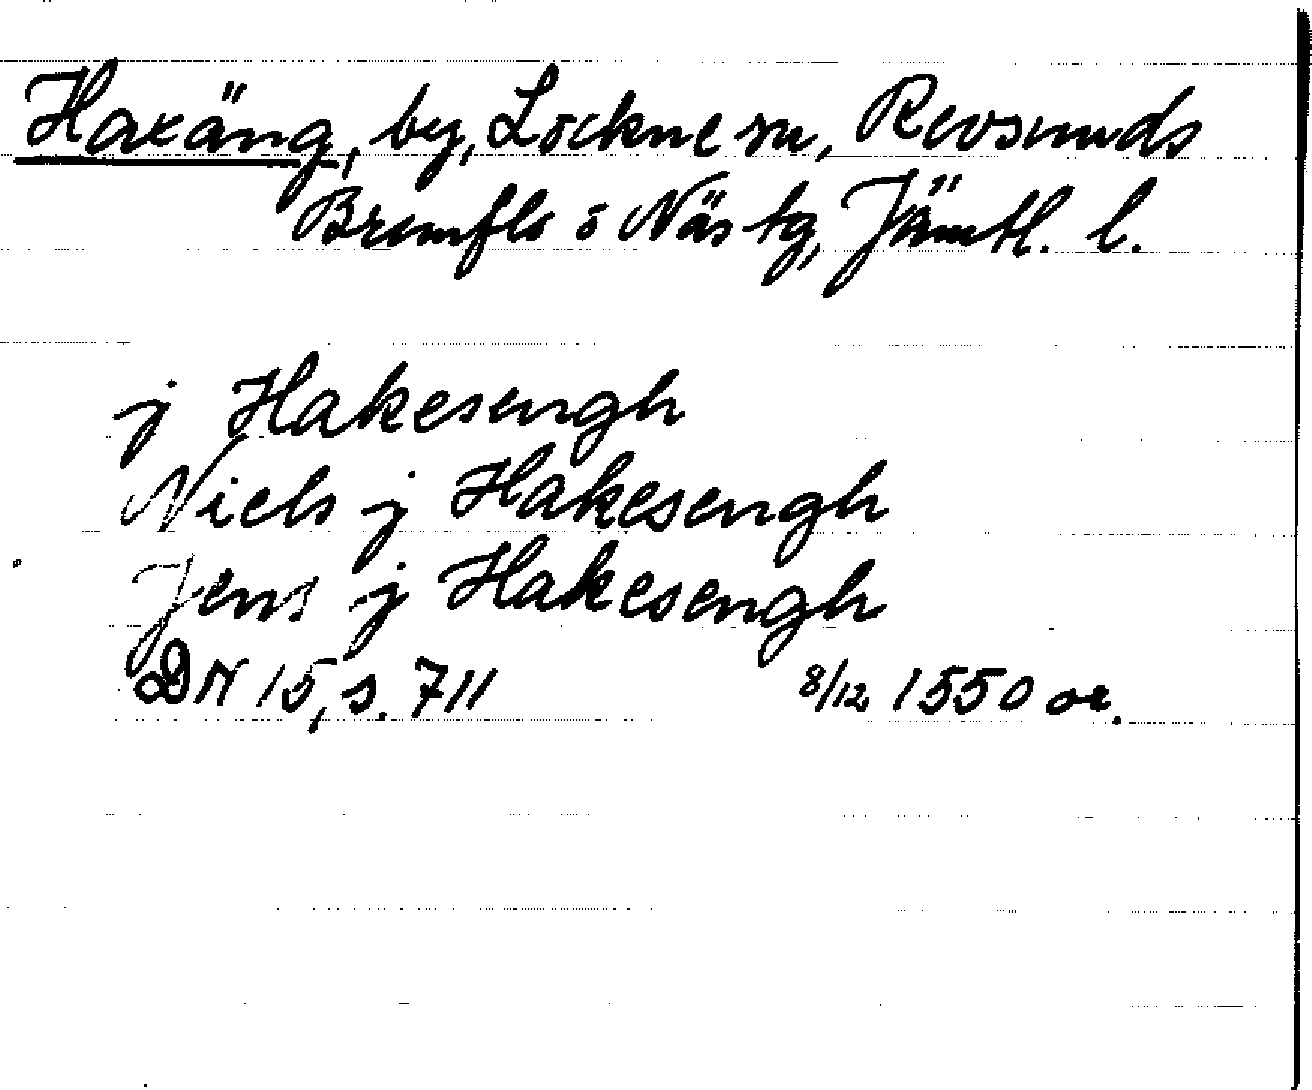 Haxäng, by, Lockne sn, Revsunds
Brunflo o Näs tg, Jämtl. l.
j Hakesengh
Niels j Hakesengh
Jens j Hakesengh
DN 15, s. 711 8/12 1550 or.